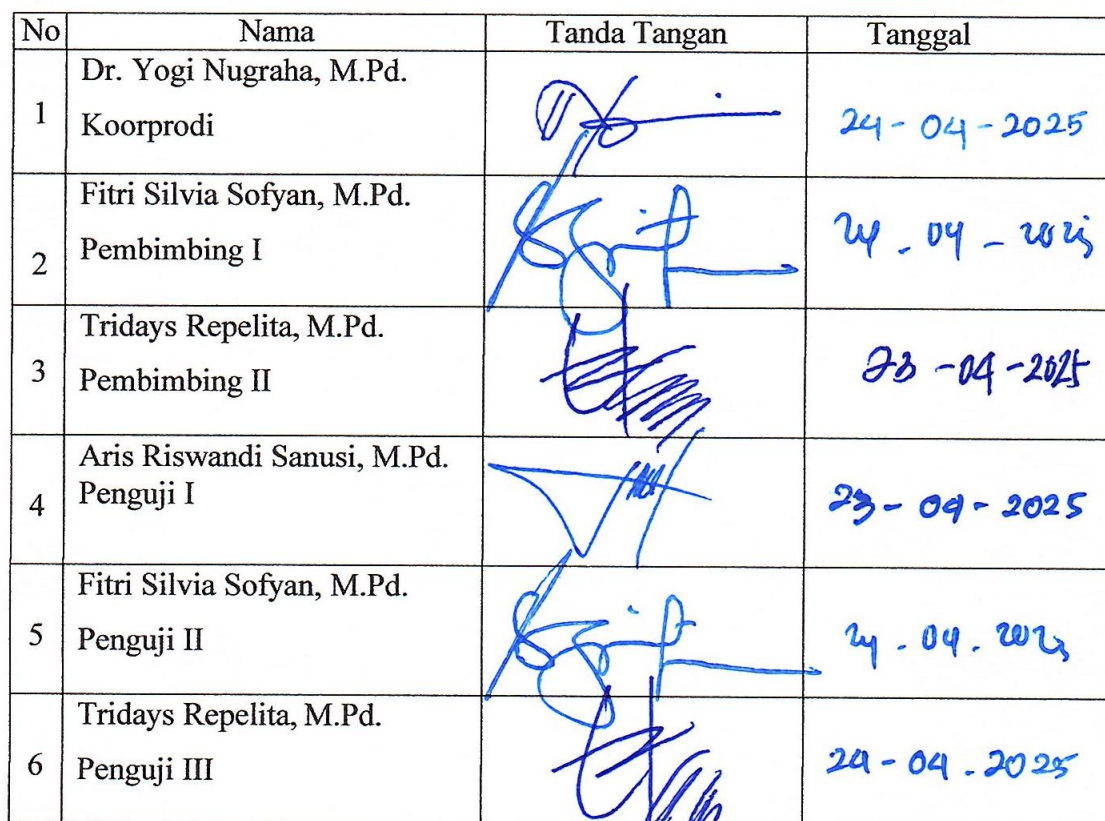 No Nama Tanda Tangan Tanggal
Dr. Yogi Nugraha, M.Pd.
1 Koorprodi 24-04-2025
Fitri Silvia Sofyan, M.Pd.
2 Pembimbing I 24-04-2025
Tridays Repelita, M.Pd.
3 Pembimbing II 23-04-2025
Aris Riswandi Sanusi, M.Pd.
4 Penguji I 23-04-2025
Fitri Silvia Sofyan, M.Pd.
5 Penguji II 24.04.2025
Tridays Repelita, M.Pd.
6 Penguji III 24-04.2025